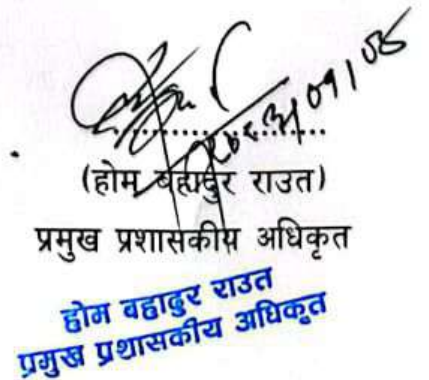 (होम बहादुर राउत)
प्रमुख प्रशासकीय अधिकृत
होम वहादुर राउत
प्रमुख प्रशासकीय अधिकृत